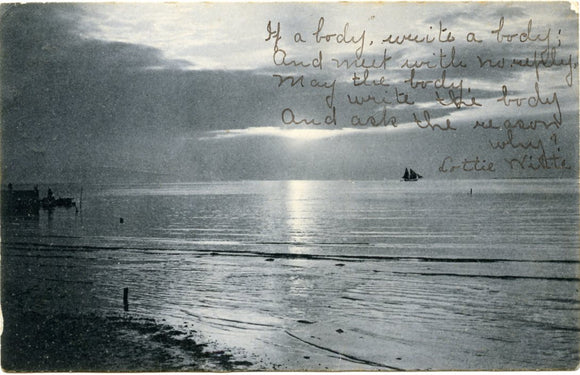 If a body, write a body;
And meet with no reply,
May the body,
write the body
And ask the reason
why?
Lottie